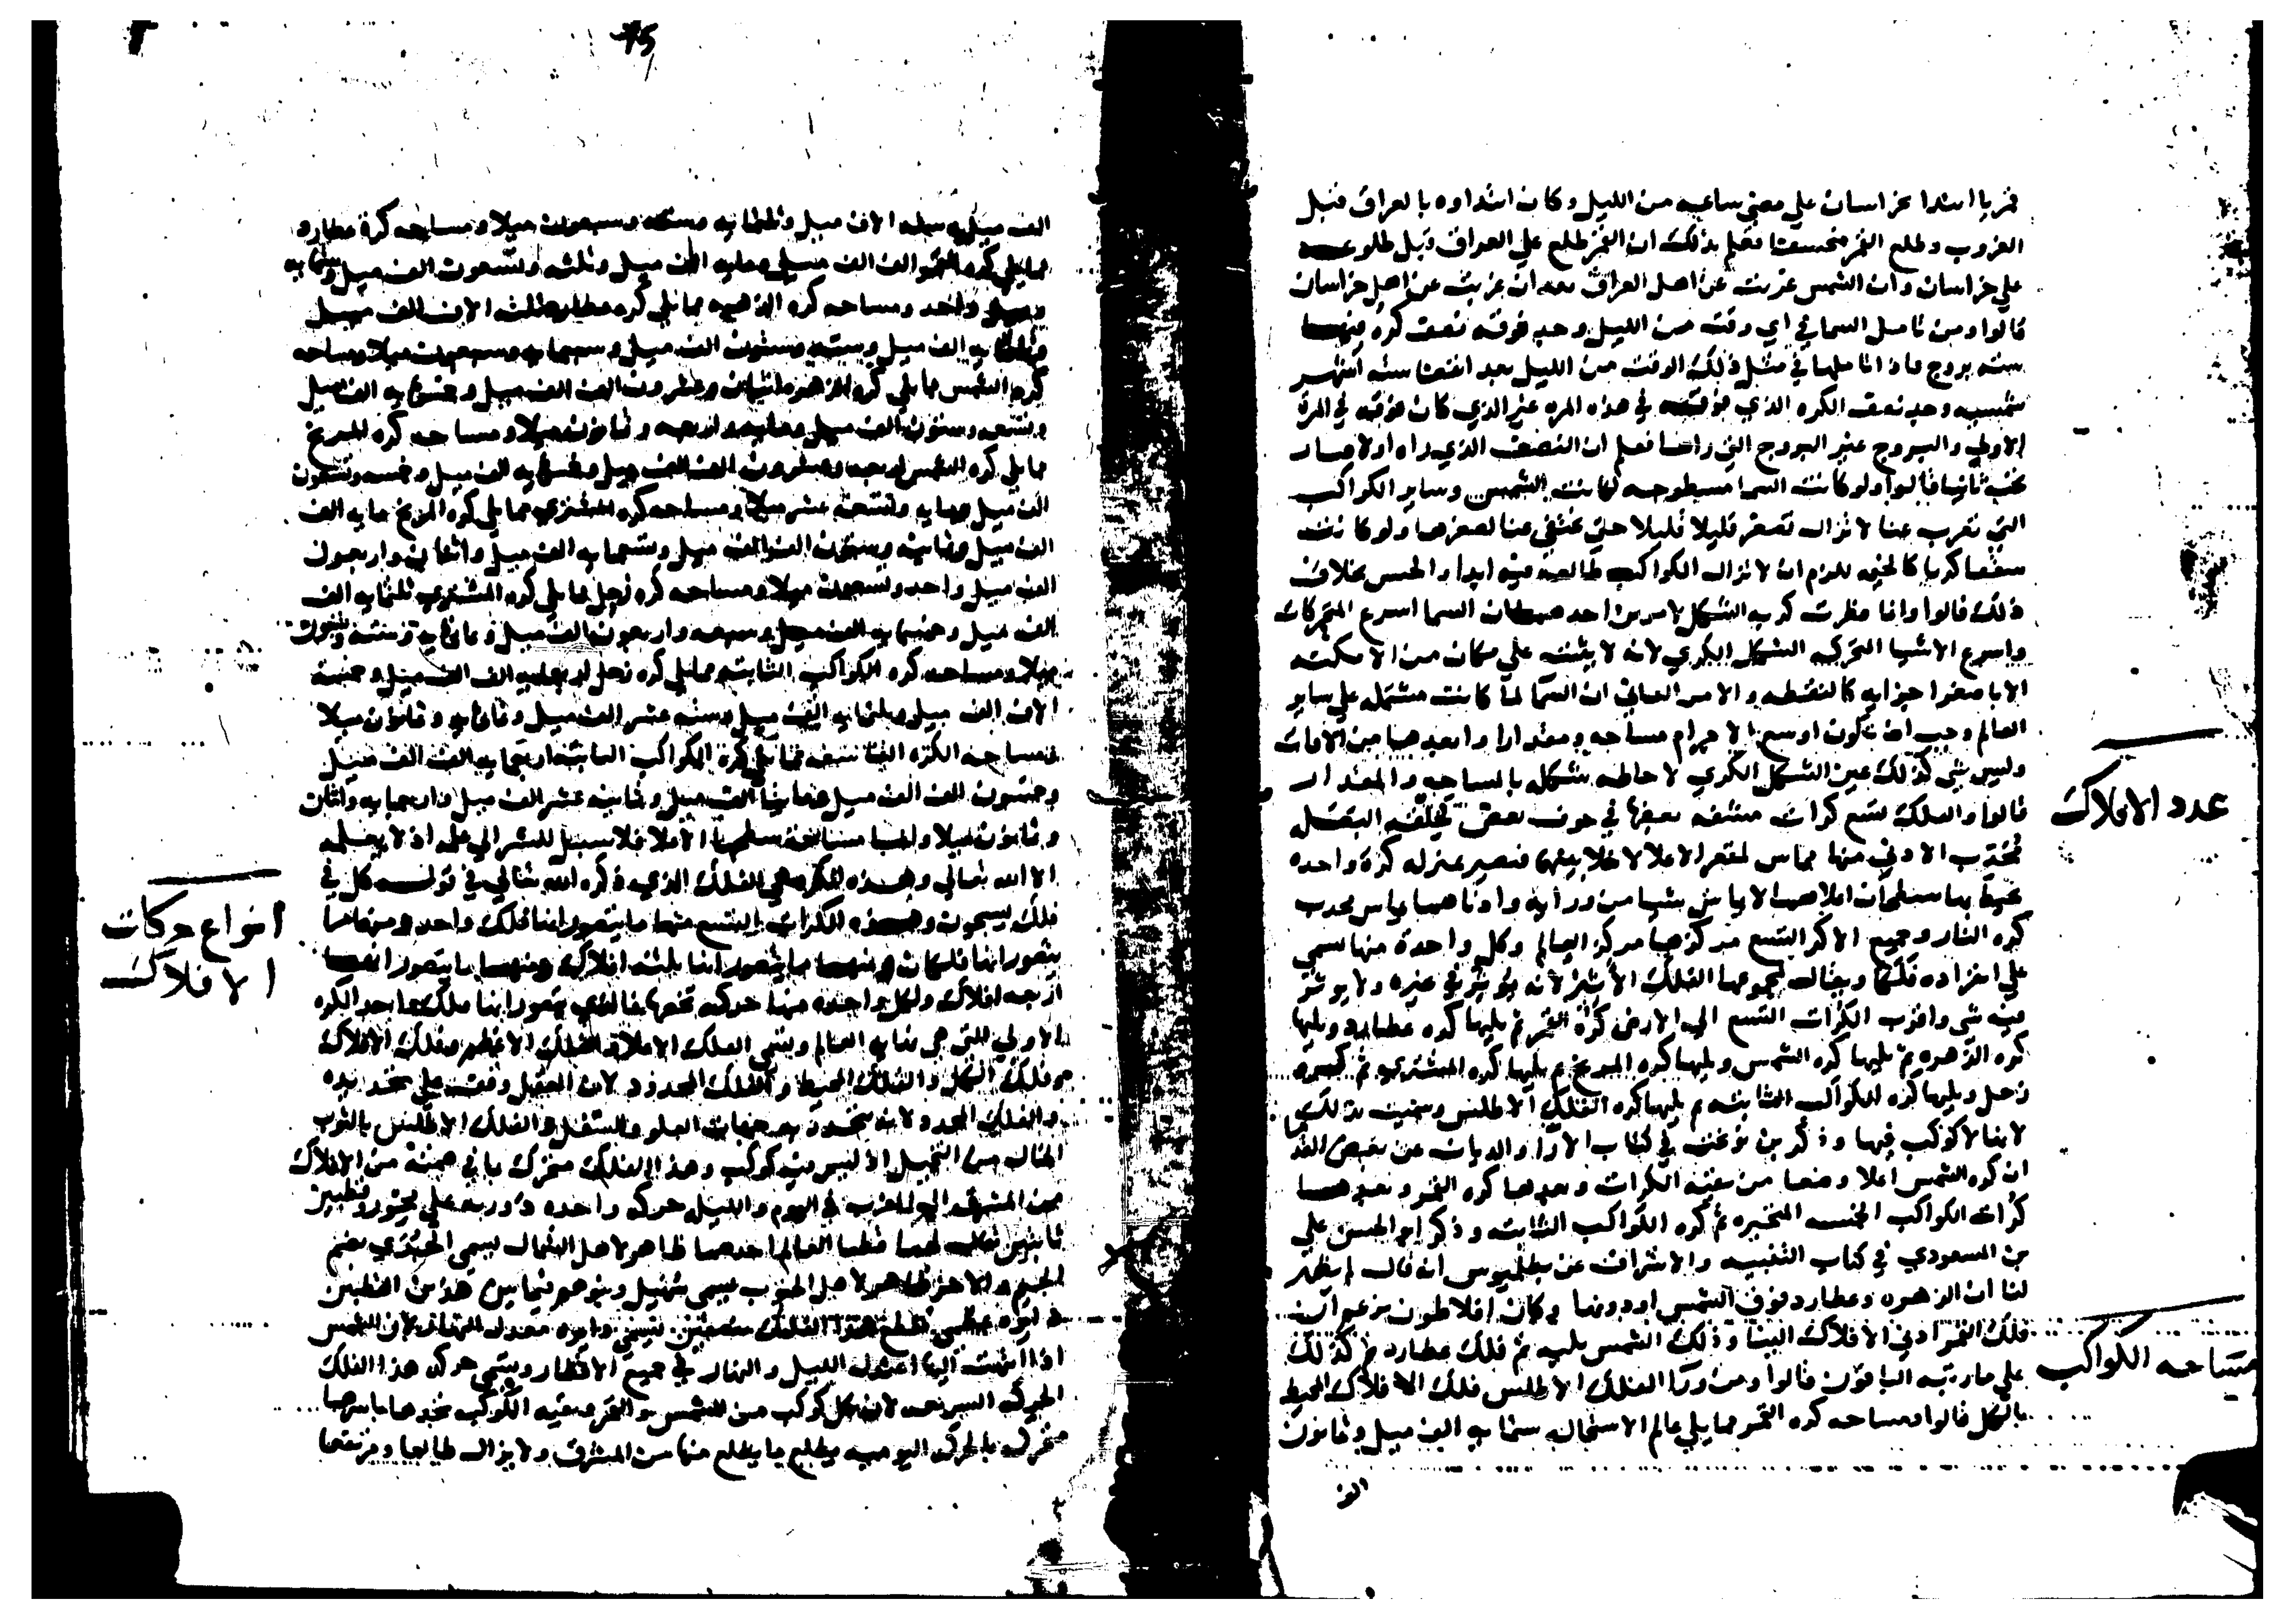 فربا ابتدا بخراسان علي مضي ساعه من الليل وكان ابتداوه بالعراق قبل
الغروب وطلع القمر منخسفا فعلم بذلك ان القمر طلع علي العراق قبل طلوعه
علي خراسان وان الشمس غربت عن اهل العراق بعد ان غربت عن اهل خراسان
قالوا ومن تامل السما في اي وقت من الليل وجد فوقه نصف كره فيها
سته بروج فاذا تاملها في مثل ذلك الوقت من الليل بعد انقضا سته اشهر
شمسيه وجد نصف الكره الذي فوقه في هذه المره غير الذي كان فوقه في المرة
الاولي والبروج غير البروج التي راها فعلم ان النصف الذي راه اولا صار
تحت ثانيا قالوا ولو كانت السما مسطوحه لكانت الشمس وساير الكواكب
التي تغرب عنا لا تزال تصغر قليلا قليلا حتي تختفي عنا لصغرها ولو كانت
سقفا كريا كالخيمه للزم ان لا تزال الكواكب طالعه فيه ابدا والحس بخلاف
ذلك قالوا وانما كريه الشكل لامرين احدهما ان السما اسرع المتحركات
واسرع الاشيا المتحركه الشكل الكري لانه لا يثبت علي مكان من الامكنه
الا باصغر اجزايه كالنقطه والامر الثاني ان السما لما كانت مشتمله علي ساير
العالم وجب ان تكون اوسع الاجرام مساحه ومقدارا وابعدها من الافات
وليس شي كذلك غير الشكل الكري لاحاطه شكله بالمساحه والمقدار
عدد الافلاك
قالوا والفلك تسع كرات بعضها في جوف بعض
محدب الادني منها مماس لمقعر الاعلا لا خلا بينها فتصير بمنزله كرة واحده
يحيط بها سطحان اعلاهما لا يماس شيا من ورايه وادناهما يماس محدب
كره النار وجميع الاكر التسع مركزها مركز العالم وكل واحدة منها سمي
علي انفراده فلكا ويقال لمجموعها الفلك الاثير لانه يوثر في غيره ولا يوثر
فيه شي واقرب الكرات التسع الي الارض كرة القمر ثم يليها كره عطارد ويليها
كره الزهره ثم يليها كره الشمس ويليها كره المريخ ثم يليها كره المشتري ثم كره
زحل ويليها كره الكواكب الثابته ثم يليها كره الفلك الاطلس وسميت بذلك
لانها لا كوكب فيها وذكر بن نوبخت في كتاب الارا والديانات عن بعض القدما
ان كره الشمس اعلا وضعا من بقيه الكرات وبعدها كره القمر وبعدها
كرات الكواكب الخمسه المتحيره ثم كره الكواكب الثابته وذكر ابو الحسن علي
بن المسعودي في كتاب التنبيه والاشراف عن بطلميوس انه قال لم يظهر
لنا ان الزهره وعطارد فوق الشمس او دونها وكان افلاطون يزعم ان
فلك القمر ادني الافلاك الينا وذلك الشمس يليه ثم فلك عطارد ثم كذلك
علي ما رتبه الباقون قالوا ومن ورا الفلك الاطلس فلك الافلاك المحيط
مساحه الكواكب
بالكل قالوا ومساحه كره القمر مما يلي عالم الاستحاله ستمايه الف ميل وثمانون
الف
75
الف ميل وسته الاف ميل وثلثمايه وسته وسبعون ميلا ومساحه كرة عطارد
مما يلي كره القمر الف الف ميل الف ميل وثلثه وتسعون الف ميل وستمايه
واحد ومساحه كره الزهره مما يلي كره عطارد ثلثه الاف الف ميل
وثلثمايه الف ميل وسته وستون الف ميل وسبعمايه وسبعون ميلا ومساحه
كره الشمس مما يلي كره الزهره اثنان وعشرون الف الف ميل وخمسمايه الف ميل
وستون الف ميل واربعه وثمانون ميلا ومساحه كره المريخ
مما يلي كره الشمس اربعه وعشرون الف الف ميل وخمسمايه الف ميل وخمسه وتسعون
الف ميل ومايه وتسعة عشر ميلا ومساحه كره المشتري مما يلي كره المريخ مايه الف
الف ميل وثمانيه وستون الف الف ميل وستمايه الف ميل واثنان واربعون
الف ميل واحد وتسعون ميلا ومساحه كره زحل مما يلي كره المشتري ثلثمايه الف
الف ميل وخمسمايه الف ميل وسبعه واربعون الف ميل وثمانمايه وسته
ميلا ومساحه كره الكواكب الثابته مما يلي كره زحل اربعمايه الف الف ميل وخمسة
الاف الف ميل وثلثمايه الف ميل وسته عشر الف ميل وثمانمايه وثمانون ميلا
ومساحه الكره التاسعه مما يلي كرة الكواكب الثابته اربعمايه الف الف ميل
وخمسون الف الف ميل وثمانمايه الف ميل وثمانيه عشر الف ميل واربعمايه واثنان
وثمانون ميلا واما مساحة سطحها الاعلا فلا سبيل للبشر الي علمه اذ لا يعلمه
الا الله تعالي وهذه الكره هي الفلك الذي ذكره الله تعالي في قوله كل في
انواع حركات
الافلاك
فلك يسبحون وهذه الكرات التسع منها ما يتصور انها فلك واحد ومنها ما
يتصور انها فلكان ومنها ما يتصور انها ثلثه افلاك ومنها ما يتصور انها
اربعه افلاك ولكل واحده منها حركه تخصها فالذي يتصور انها فلك واحد الكره
الاولي التي هي نهايه العالم وتسمي الفلك الاعلا والفلك الاعظم وفلك الافلاك
وفلك الكل والفلك المحيط والفلك المحدود لان العقل وقف علي تحديده
والفلك المحدد لانه تحددت به جهات العلو والسفل والفلك الاطلس بالثوب
الخالي من التخييل اذ ليس فيه كوكب وهذا الفلك محرك باقي ضمنه من الافلاك
من المشرق الي المغرب في اليوم والليل حركه واحده دوريه علي محور وقطبين
ثابتين يقال لهما قطبا العالم احدهما ظاهر لاهل الشمال يسمي الجدي بضم
الجيم والاخر ظاهر لاهل الجنوب يسمي سهيل ويتوهم فيما بين هذين القطبين
دايره عظمي تقطع هذا الفلك بنصفين تسمي دايره معدل النهار لان الشمس
اذا انتهت اليها اعتدل الليل والنهار في جميع الاقطار وتسمي حركه هذا الفلك
الحركه السريعه لان كل كوكب من الشمس والقمر وبقيه الكوكب نجدها باسرها
تتحرك بالحركه اليوميه يطلع ما يطلع منها من المشرق ولا يزال طالعا ومرتفعا